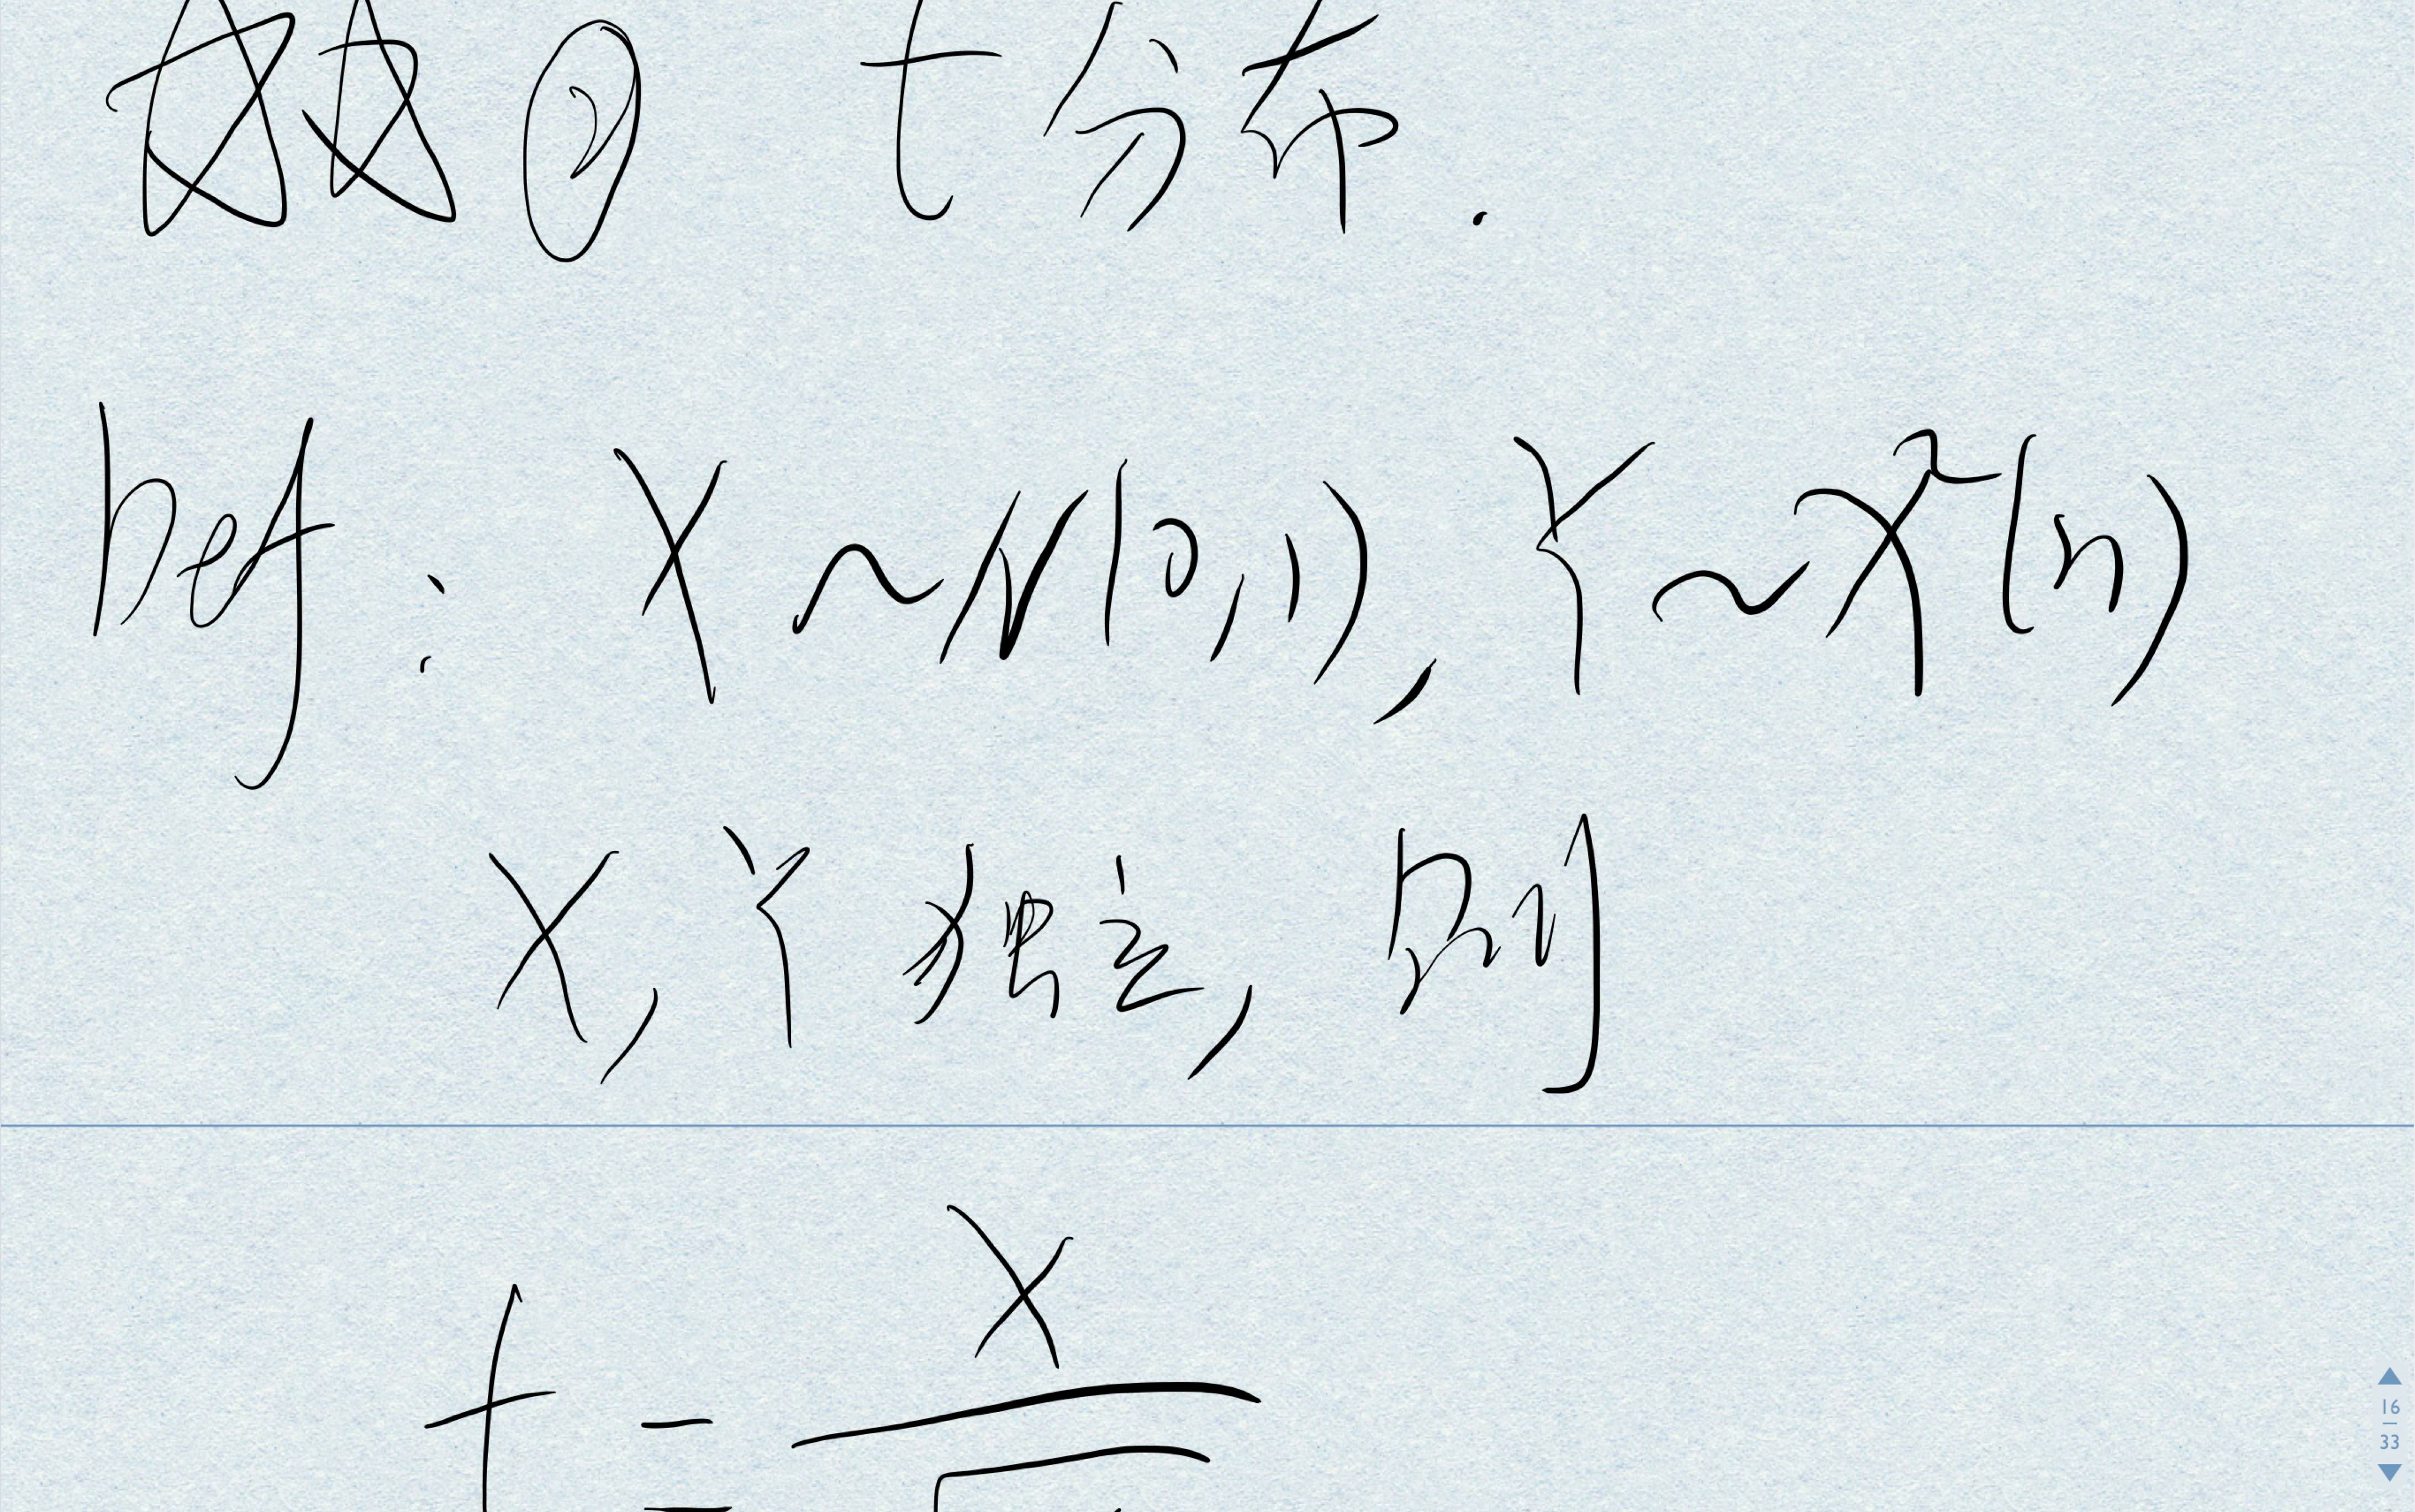 ☆☆② t分布.
Def: X~N(0,1), Y~χ²(n)
X, Y独立, 则
X
t =
16
33